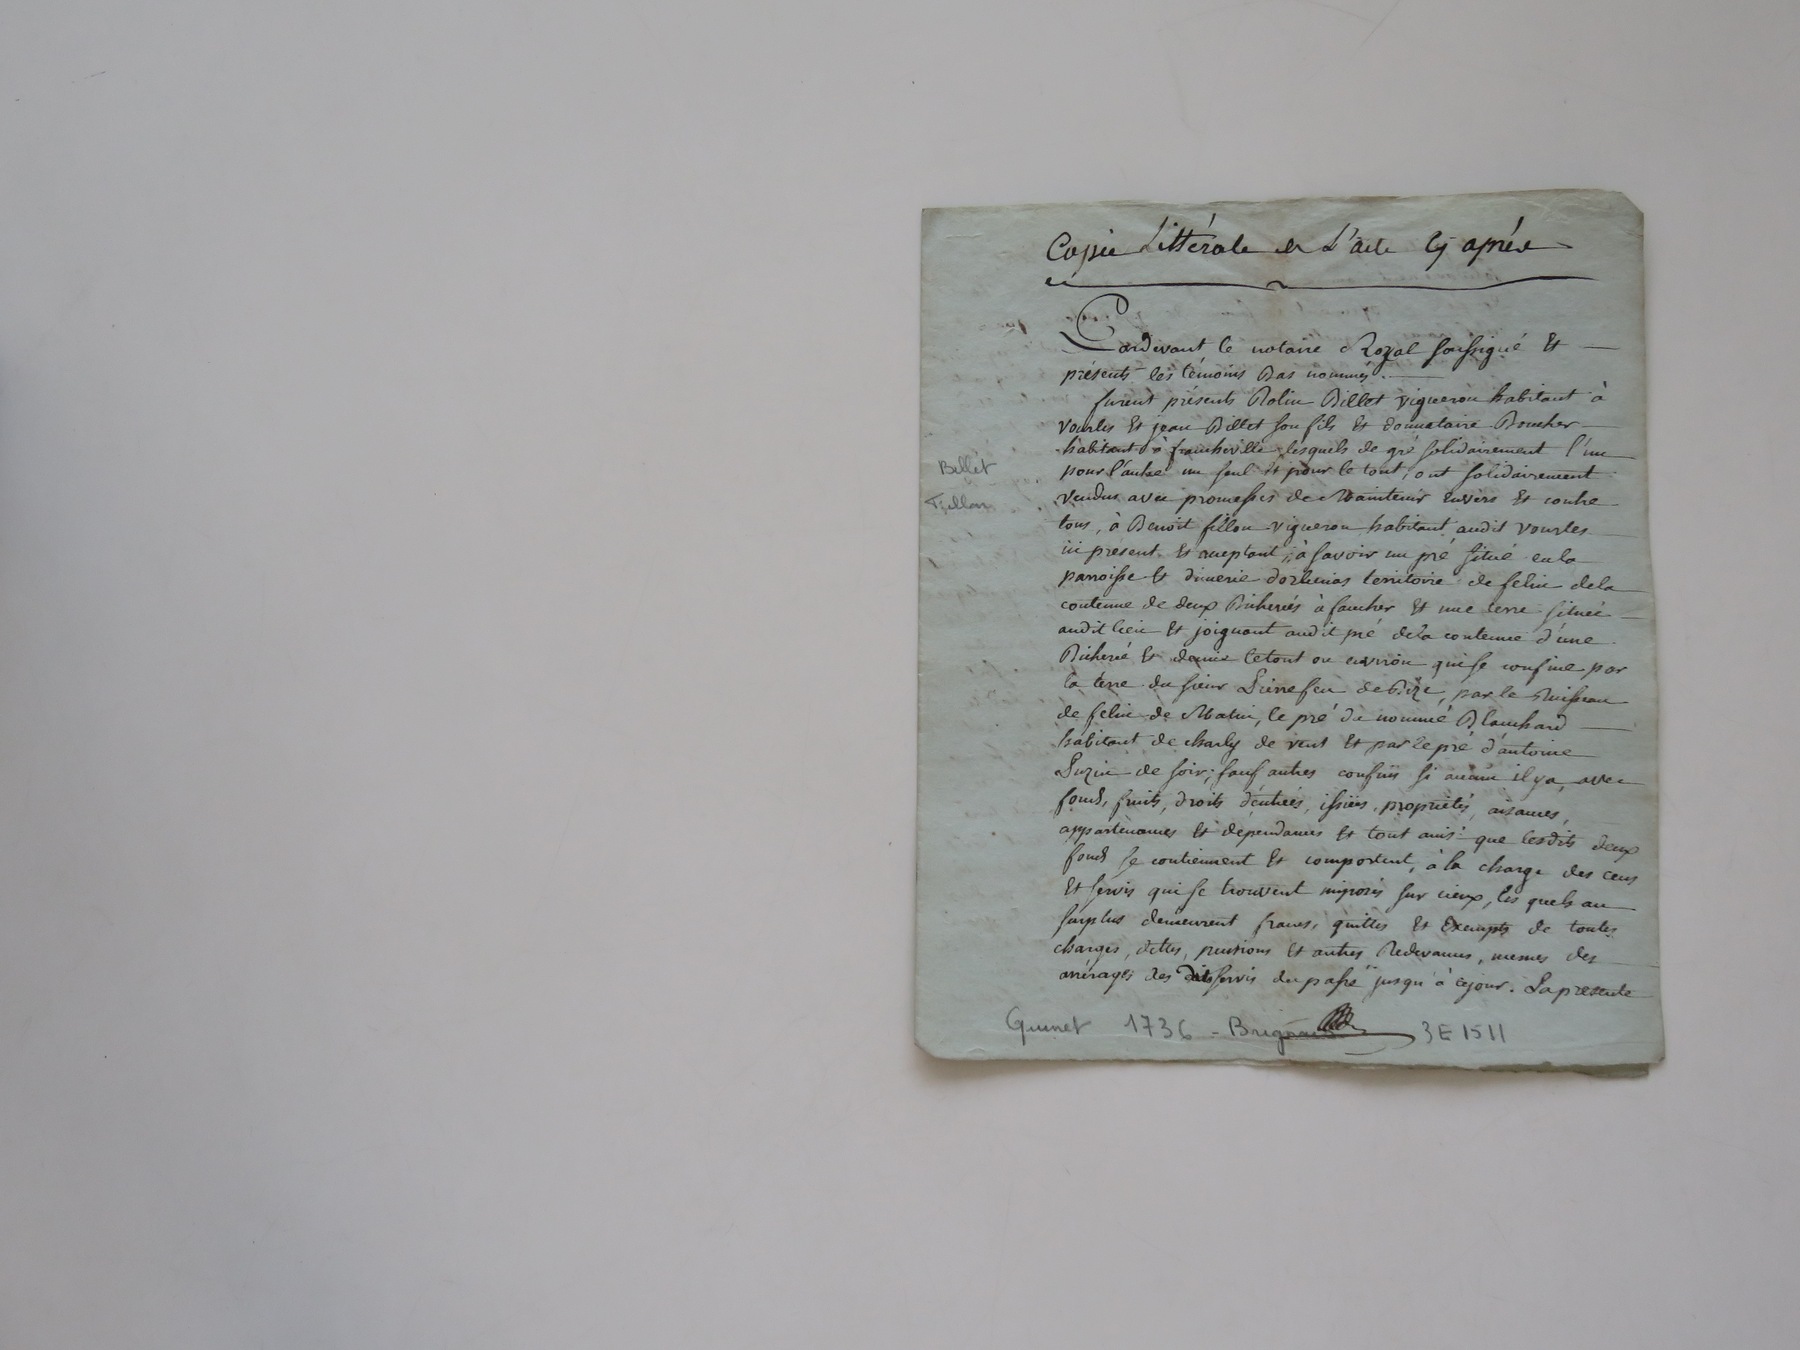 Copie Littérale de L'acte cy après
Pardevant le notaire Royal soussigné Et
présents les témoins Bas nommés.
furent présents Rolin Billet vigneron habitant à
vourles Et jean Billet son fils Et donnataire Boucher
habitant à francheville lesquels de gré solidairement l'un
pour l'autre un seul Et pour le tout, ont solidairement
vendus avec promesses de Maintenir Envers Et contre
tous, à Benoit fillon vigneron habitant audit vourles
ici présent Et acceptant, à savoir un pré situé en la
parroisse Et dimerie d'orlienas territoire de felin dela
contenue de deux Bicherées à faucher Et une terre située
audit lieu Et joignant audit pré dela contenue d'une
Bicherée Et demie le tout ou environ qui se confine par
la terre du sieur de par le Ruisseau
de felin de Matin, le pré du nommé Blanchard
habitant de charly de vent Et par le pré d'antoine
de soir; sauf autres confins si aucun il y a, avec
fonds, fruits, droits d'entrées, issües, propriétés, aisances,
appartenances Et dépendances Et tout ainsi que lesdits deux
fonds se contiennent Et comportent, à la charge des cens
Et servis qui se trouvent imposés sur iceux, les quels au
surplus demeurent francs, quittes Et Exempts de toutes
charges, dettes, pensions Et autres Redevances, mesmes des
arrérages des dits servis du passé jusqu'à ce jour. La présente
Billet
Fillon
Guinet 1736 - Brignais 3 E 1511